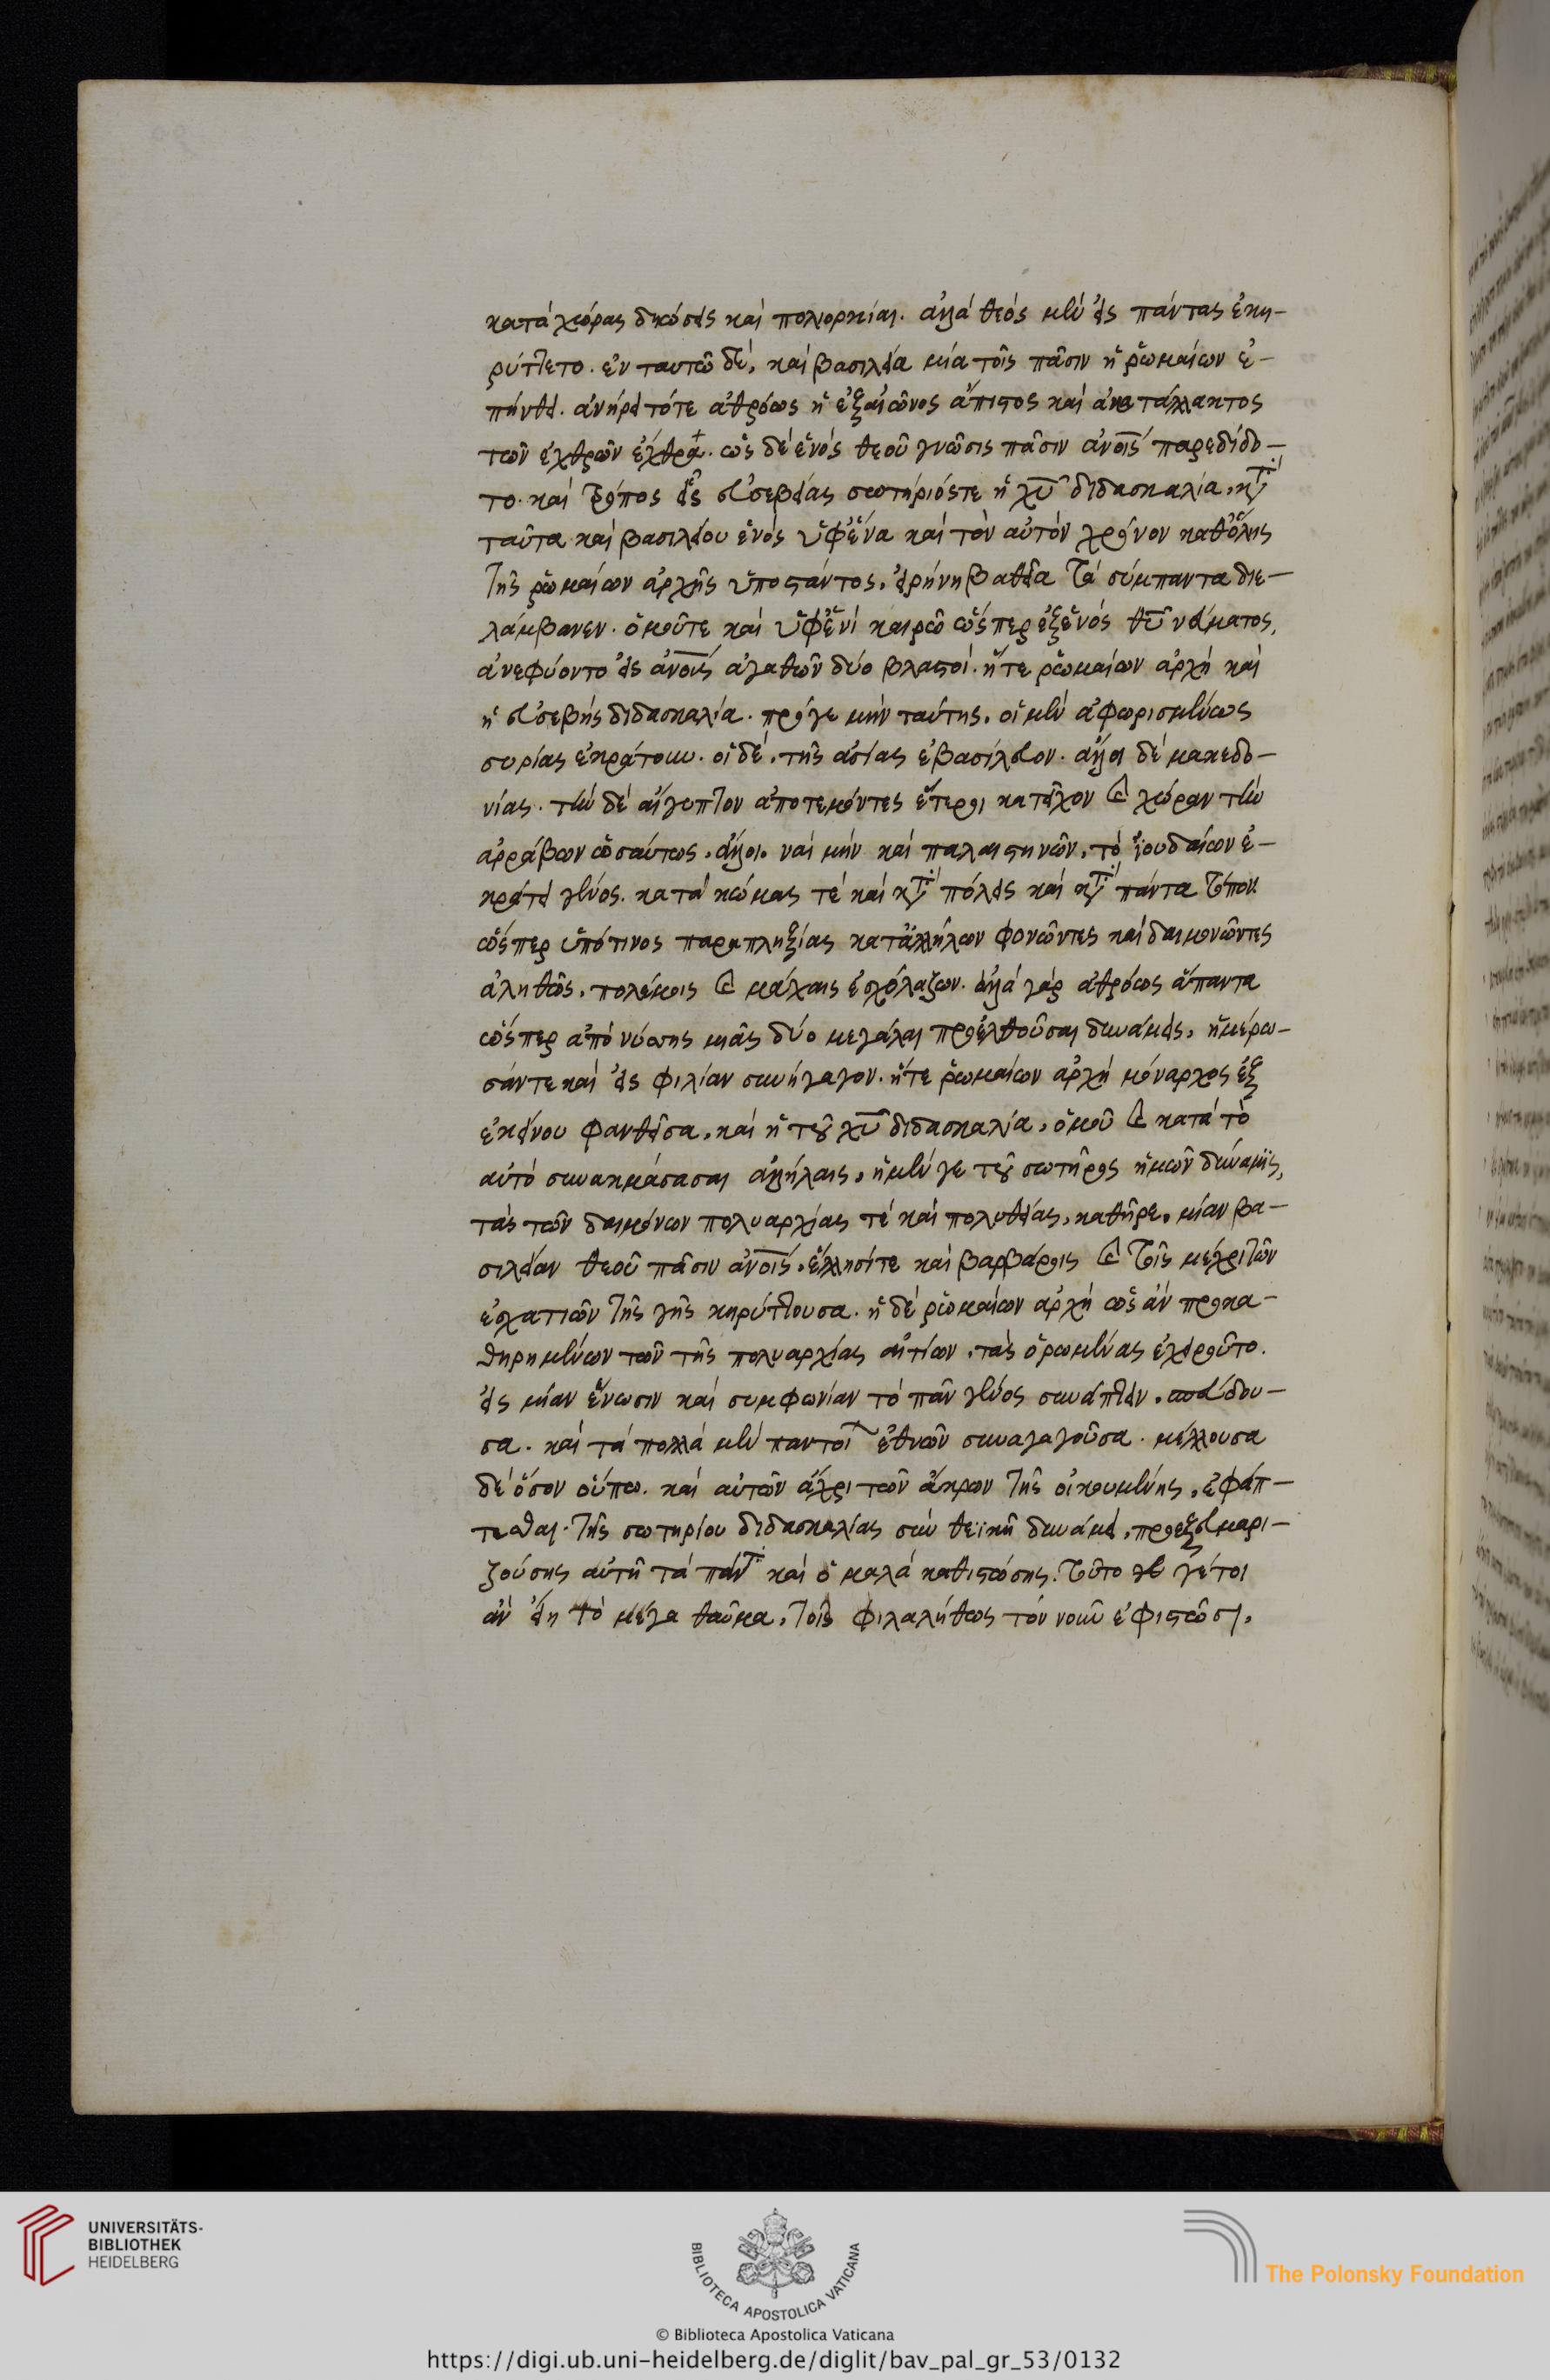 κατὰ χώρας δηώσεις καὶ πολιορκίαι. ἀλλὰ θεὸς μὲν εἷς πάντας ἐκη-
ρύττετο. ἐν ταυτῶ δὲ, καὶ βασιλεία μία τοῖς πᾶσιν ἡ ῥωμαίων ἐ-
πήνθει. ἀνήρει τότε ἀθρόως ἡ ἐξαιῶνος ἄπιστος καὶ ἀκατάλλακτος
τῶν ἐχθρῶν ἔχθρα. ὡς δὲ ἑνὸς θεοῦ γνῶσις πᾶσιν ἀνοις παρεδίδο-
το. καὶ τρόπος εἷς εὐσεβείας σωτήριόστε ἡ χυ διδασκαλία, κατὰ
ταῦτα καὶ βασιλέου ἑνὸς ὑφἕνα καὶ τὸν αὐτὸν χρόνον καθὅλης
τῆς ῥωμαίων ἀρχῆς ὑποστάντος, εἰρήνη βαθεῖα τὰ σύμπαντα διε-
λάμβανεν. ὁμοῦτε καὶ ὑφἑνὶ καιρῶ ὥσπερ ἐξἑνὸς θυ νεύματος,
ἀνεφύοντο εἰς ἀνους ἀγαθῶν δύο βλαστοί. ἥτε ῥωμαίων ἀρχὴ καὶ
ἡ εὐσεβὴς διδασκαλία. πρόγε μὴν ταύτης, οἱ μὲν ἀφωρισμένως
συρίας ἐκράτουν. οἱ δὲ, τῆς ἀσίας ἐβασίλευον. ἄλλοι δὲ μακεδο-
νίας. τὴν δὲ αἴγυπτον ἀποτεμόντες ἕτεροι κατεῖχον καὶ χώραν τὴν
ἀρράβων ὡσαύτως, ἄλλοι. ναὶ μὴν καὶ παλαιστηνῶν, τὸ ἰουδαίων ἐ-
κράτει γένος. κατὰ κώμας τὲ καὶ κατὰ πόλεις καὶ κατὰ πάντα τόπον
ὥσπερ ὑπότινος παραπληξίας κατἀλλήλων φονῶντες καὶ δαιμονῶντες
ἀληθῶς, πολέμοις καὶ μάχαις ἐσχόλαζων. ἀλλὰ γὰρ ἀθρόως ἅπαντα
ὥσπερ ἀπὸ νύσσης μιᾶς δύο μεγάλαι προελθοῦσαι δυνάμεις, ἡμέρω-
σάντε καὶ εἰς φιλίαν συνήγαγον. ἥτε ῥωμαίων ἀρχὴ μόναρχος ἐξ
ἐκείνου φανθεῖσα, καὶ ἡ τοῦ χυ διδασκαλία, ὁμοῦ καὶ κατὰ τὸ
αὐτὸ συνακμάσασαι ἀλλήλαις, ἡ μέν γε τοῦ σωτῆρος ἡμῶν δύναμις,
τὰς τῶν δαιμόνων πολυαρχίας τὲ καὶ πολυθείας, καθῆρε, μίαν βα-
σιλείαν θεοῦ πᾶσιν ἀνοις, ἕλλησίτε καὶ βαρβάροις καὶ τοῖς μέχριτῶν
ἐσχατιῶν τῆς γῆς κηρύττουσα. ἡ δὲ ῥωμαίων ἀρχὴ ὡς ἂν προκα-
θηρημένων τῶν τῆς πολυαρχίας αἰτίων, τὰς ὁρωμένας ἐχειροῦτο.
εἰς μίαν ἕνωσιν καὶ συμφωνίαν τὸ πᾶν γένος συνάπτειν, σπεύδου-
σα. καὶ τὰ πολλὰ μὲν παντοί ἐθνῶν συναγαγοῦσα. μέλλουσα
δὲ ὅσον οὔπω. καὶ αὐτῶν ἄχρι τῶν ἄκρων τῆς οἰκουμένης, ἐφάπ-
τεσθαι. τῆς σωτηρίου διδασκαλίας σὺν θεϊκῆ δυνάμει, προεξευμαρι-
ζούσης αὐτῆ τὰ πάντα καὶ ὁμαλὰ καθιστώσης. τοῦτο μὲν γέτοι
ἂν εἴη τὸ μέγα θαῦμα, τοῖς φιλαλήθως τὸν νοῦν ἐφιστῶσι.
UNIVERSITÄTS-
BIBLIOTHEK
HEIDELBERG
BIBLIOTECA APOSTOLICA VATICANA
The Polonsky Foundation
© Biblioteca Apostolica Vaticana
https://digi.ub.uni-heidelberg.de/diglit/bav_pal_gr_53/0132